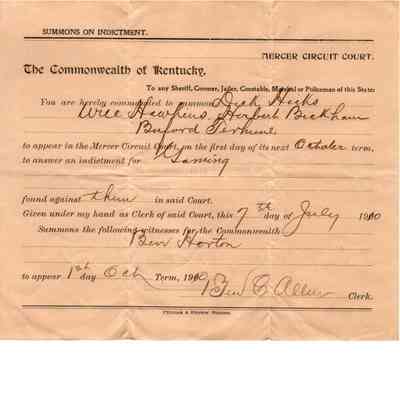 SUMMONS ON INDICTMENT.
MERCER CIRCUIT COURT.
The Commonwealth of Kentucky,
To any Sheriff, Coroner, Jailer, Constable, Marshal or Policeman of this State:
You are hereby commanded to summon Dick Hicks
Will Hawkins, Herbert Bickham
Buford
to appear in the Mercer Circuit Court, on the first day of its next October term,
to answer an indictment for Gaming
found against them in said Court.
Given under my hand as Clerk of said Court, this 7th day of July 1910
Summons the following witnesses for the Commonwealth:
Ben Horton
to appear 1st day Oct Term, 1910
Ben C. Allen Clerk.